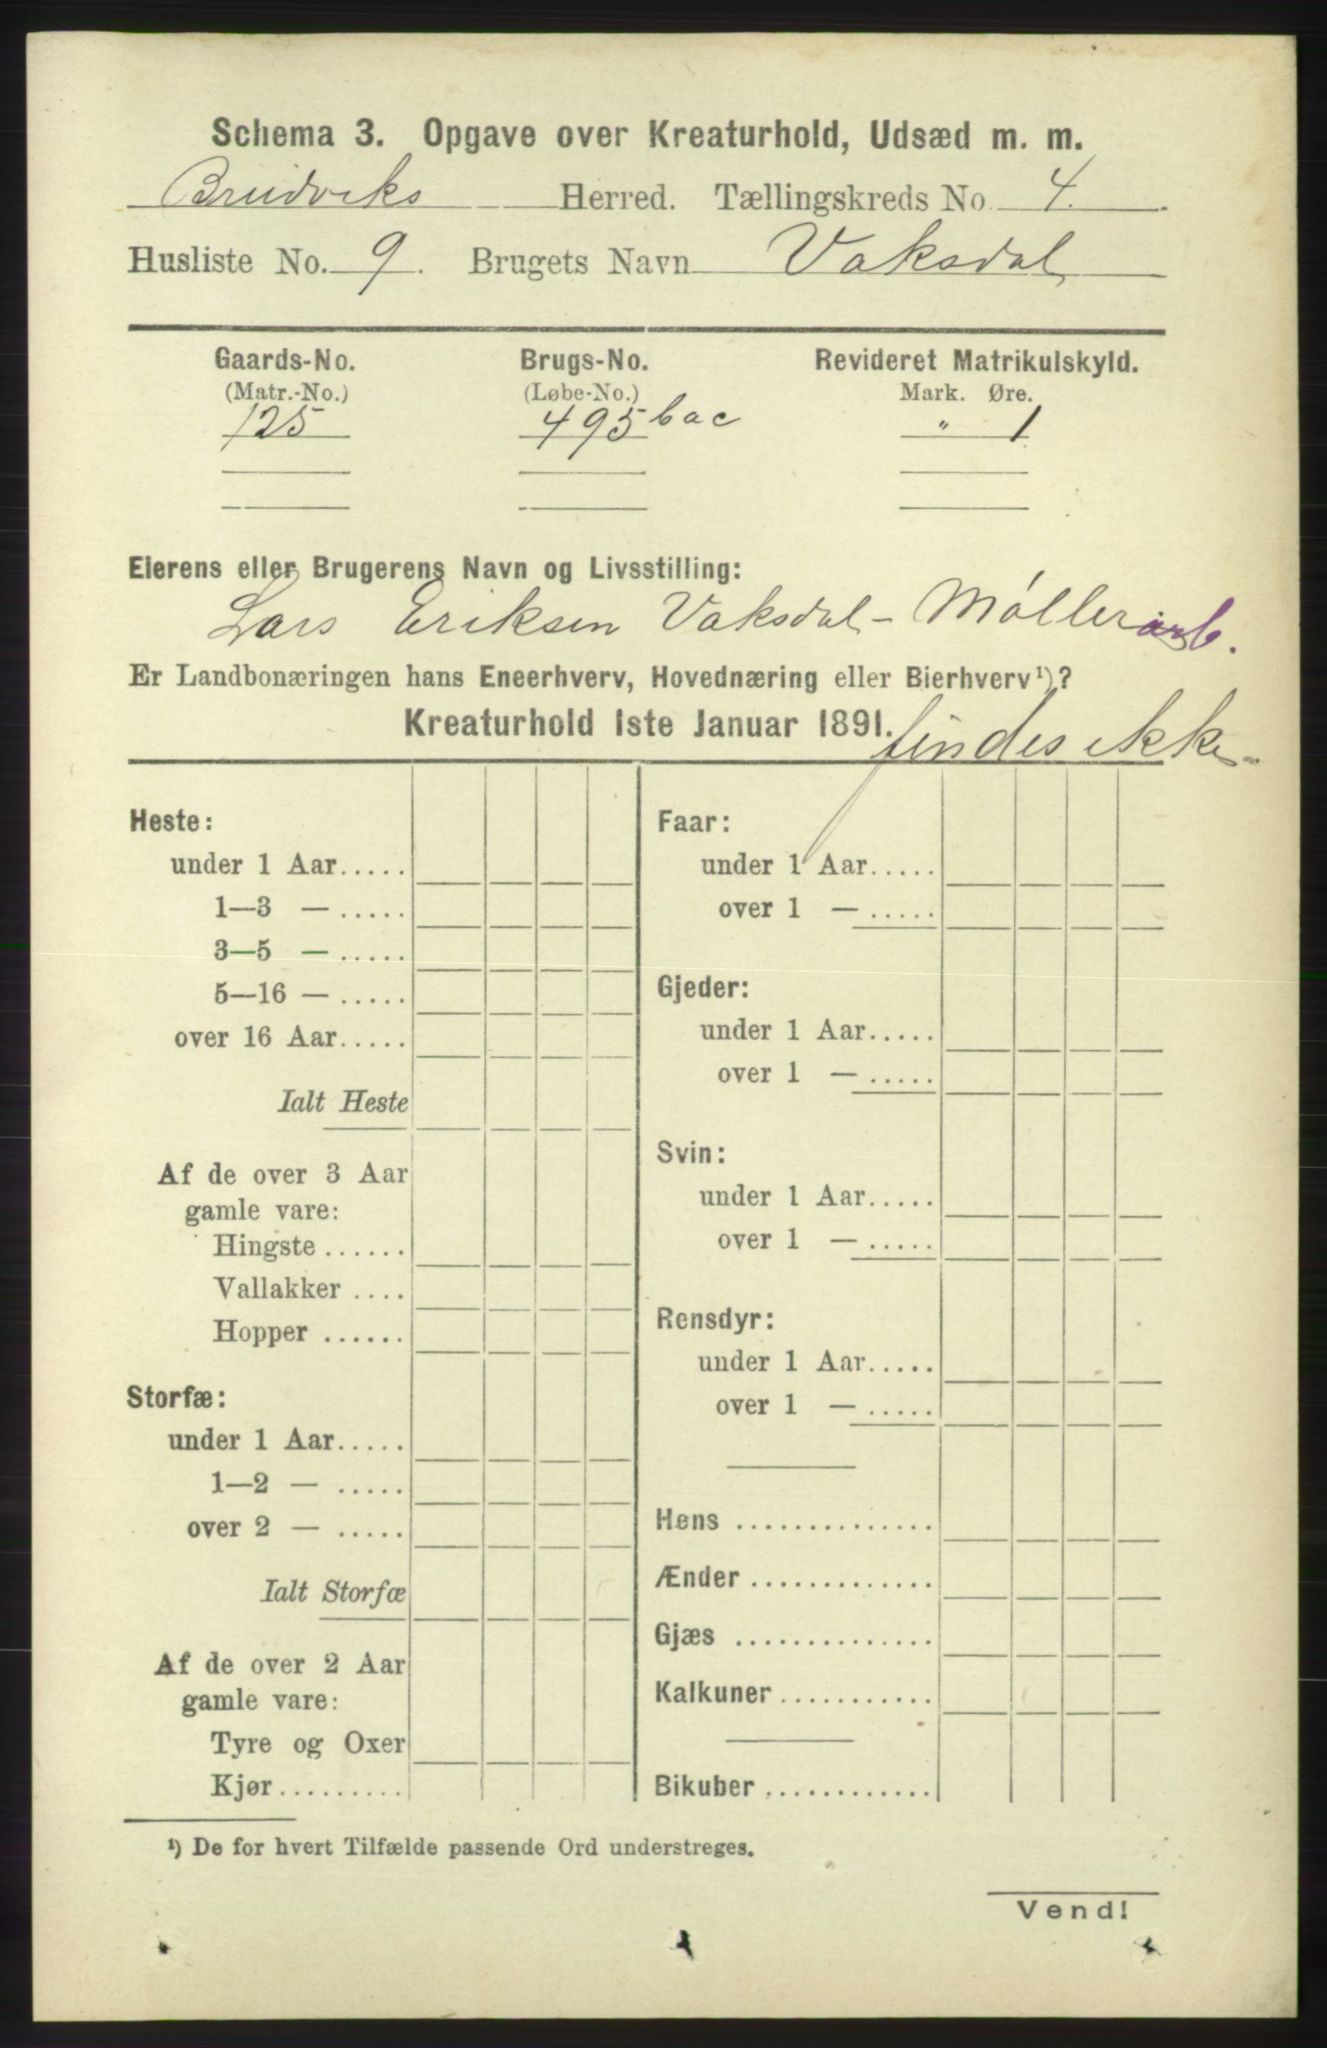 Schema 3. Opgave over Kreaturhold, Udsæd m. m.
Bruviks Herred. Tællingskreds No. 4.
Husliste No. 9. Brugets Navn Vaksdal
Gaards-No. Brugs-No. Revideret Matrikulskyld.
(Matr.-No.) (Løbe-No.) Mark. Øre.
125 495 bac " 1
Eierens eller Brugerens Navn og Livsstilling:
Lars Eriksen Vaksdal - Møllerarb.
Er Landbonæringen hans Eneerhverv, Hovednæring eller Bierhverv¹)?
Kreaturhold 1ste Januar 1891. findes ikke
Heste:
under 1 Aar.....
1—3 — .....
3—5 — .....
5—16 — .....
over 16 Aar.....
Ialt Heste
Af de over 3 Aar
gamle vare:
Hingste ......
Vallakker ....
Hopper ......
Storfæ:
under 1 Aar.....
1—2 — .....
over 2 — .....
Ialt Storfæ
Af de over 2 Aar
gamle vare:
Tyre og Oxer
Kjør.........
Faar:
under 1 Aar.....
over 1 — .....
Gjeder:
under 1 Aar.....
over 1 — .....
Svin:
under 1 Aar.....
over 1 — .....
Rensdyr:
under 1 Aar.....
over 1 — .....
Høns ..............
Ænder .............
Gjæs ..............
Kalkuner ...........
Bikuber ............
¹) De for hvert Tilfælde passende Ord understreges.
Vend!